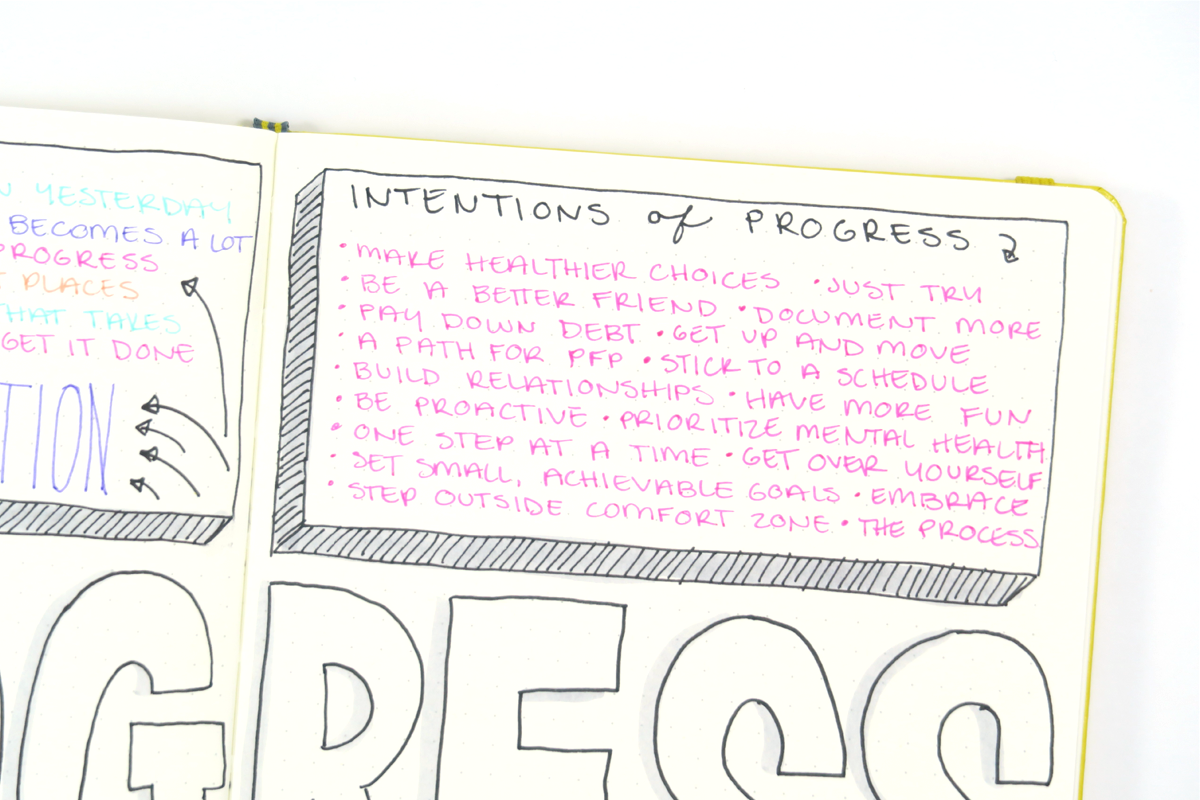 YESTERDAY
BECOMES A LOT
PROGRESS
PLACES
THAT TAKES
GET IT DONE
TION
INTENTIONS of PROGRESS
• MAKE HEALTHIER CHOICES • JUST TRY
• BE A BETTER FRIEND • DOCUMENT MORE
• PAY DOWN DEBT • GET UP AND MOVE
• A PATH FOR PFP • STICK TO A SCHEDULE
• BUILD RELATIONSHIPS • HAVE MORE FUN
• BE PROACTIVE • PRIORITIZE MENTAL HEALTH
• ONE STEP AT A TIME • GET OVER YOURSELF
• SET SMALL, ACHIEVABLE GOALS • EMBRACE
• STEP OUTSIDE COMFORT ZONE • THE PROCESS
OGRESS